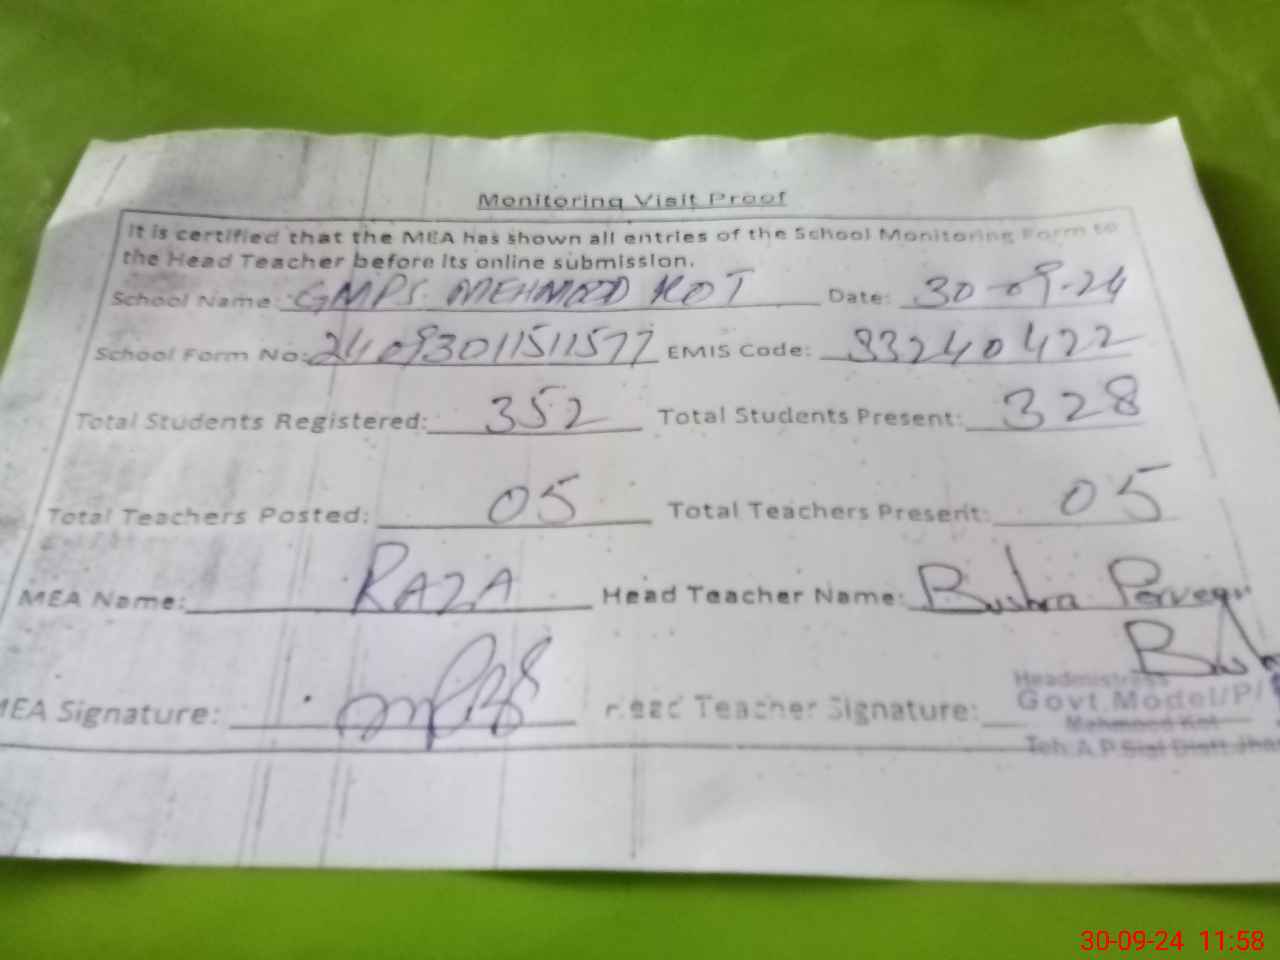 Monitoring Visit Proof
It is certified that the MEA has shown all entries of the School Monitoring Form to
the Head Teacher before its online submission.
School Name: GMPS. MEHMOOD KOT Date: 30-09-24
School Form No: 24093011511577 EMIS Code: 33240422
Total Students Registered: 352 Total Students Present: 328
Total Teachers Posted: 05 Total Teachers Present: 05
MEA Name: RAZA Head Teacher Name: Bushra Pervegn
MEA Signature: Head Teacher Signature:
Headmistress
Govt. Model/P/
Mahmood Kot
Teh: A.P Sial Distt. Jha
30-09-24 11:58